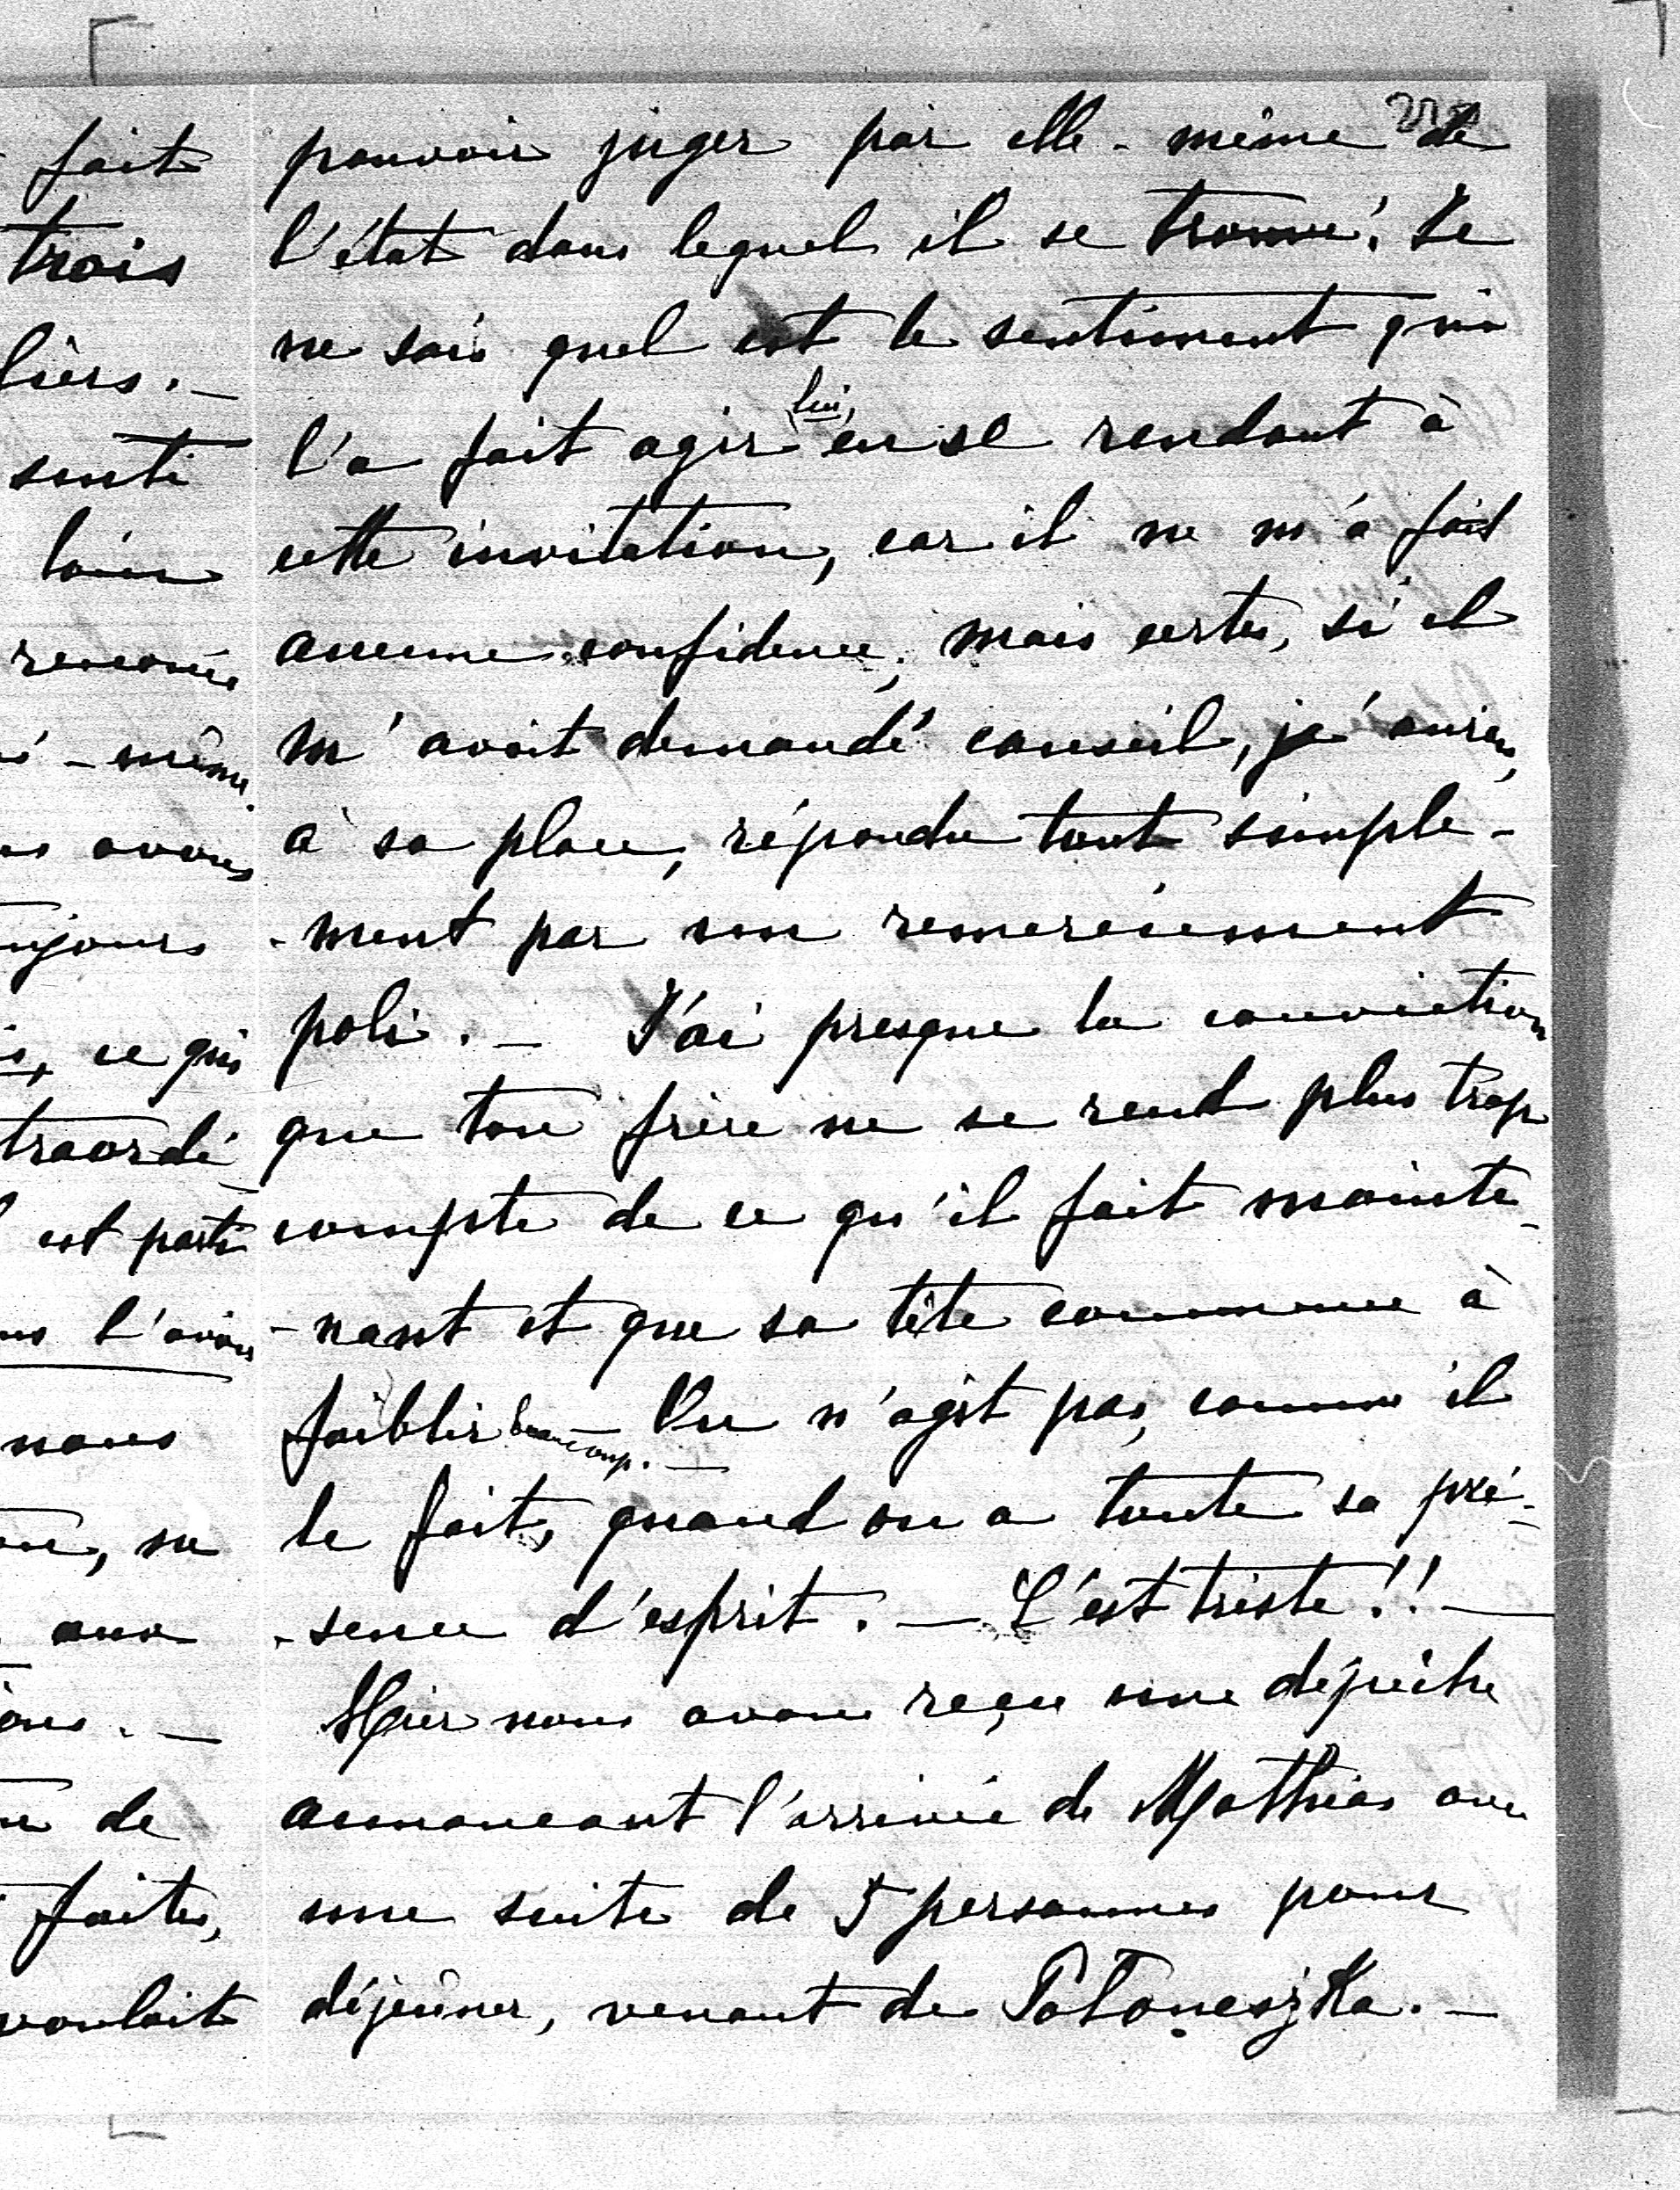 pouvoir juger par elle-même de
l'état dans lequel il se trouve! Je
ne sais quel est le sentiment qui
l'a fait agir lui, en se rendant à
cette invitation, car il ne m'a fait
aucune confidence; mais certes, si il
m'avait demandé conseil, j'aurais,
à sa place, répondu tout simple-
-ment par un remerciement
poli. — J'ai presque la conviction
que ton frère ne se rend plus trop
compte de ce qu'il fait mainte-
-nant et que sa tête commence à
faiblir beaucoup. — On n'agit pas, comme il
le fait, quand on a toute sa pré-
-sence d'esprit. — C'est triste!! —
Hier nous avons reçu une dépêche
annonçant l'arrivée de Mathias avec
une suite de 5 personnes pour
déjeûner, venant de
fait
trois
liers. —
senti
loin
même.
avons
ujours
ce qui
traordi-
est parti
l'avons
nous
aux
de
faites,
voulait